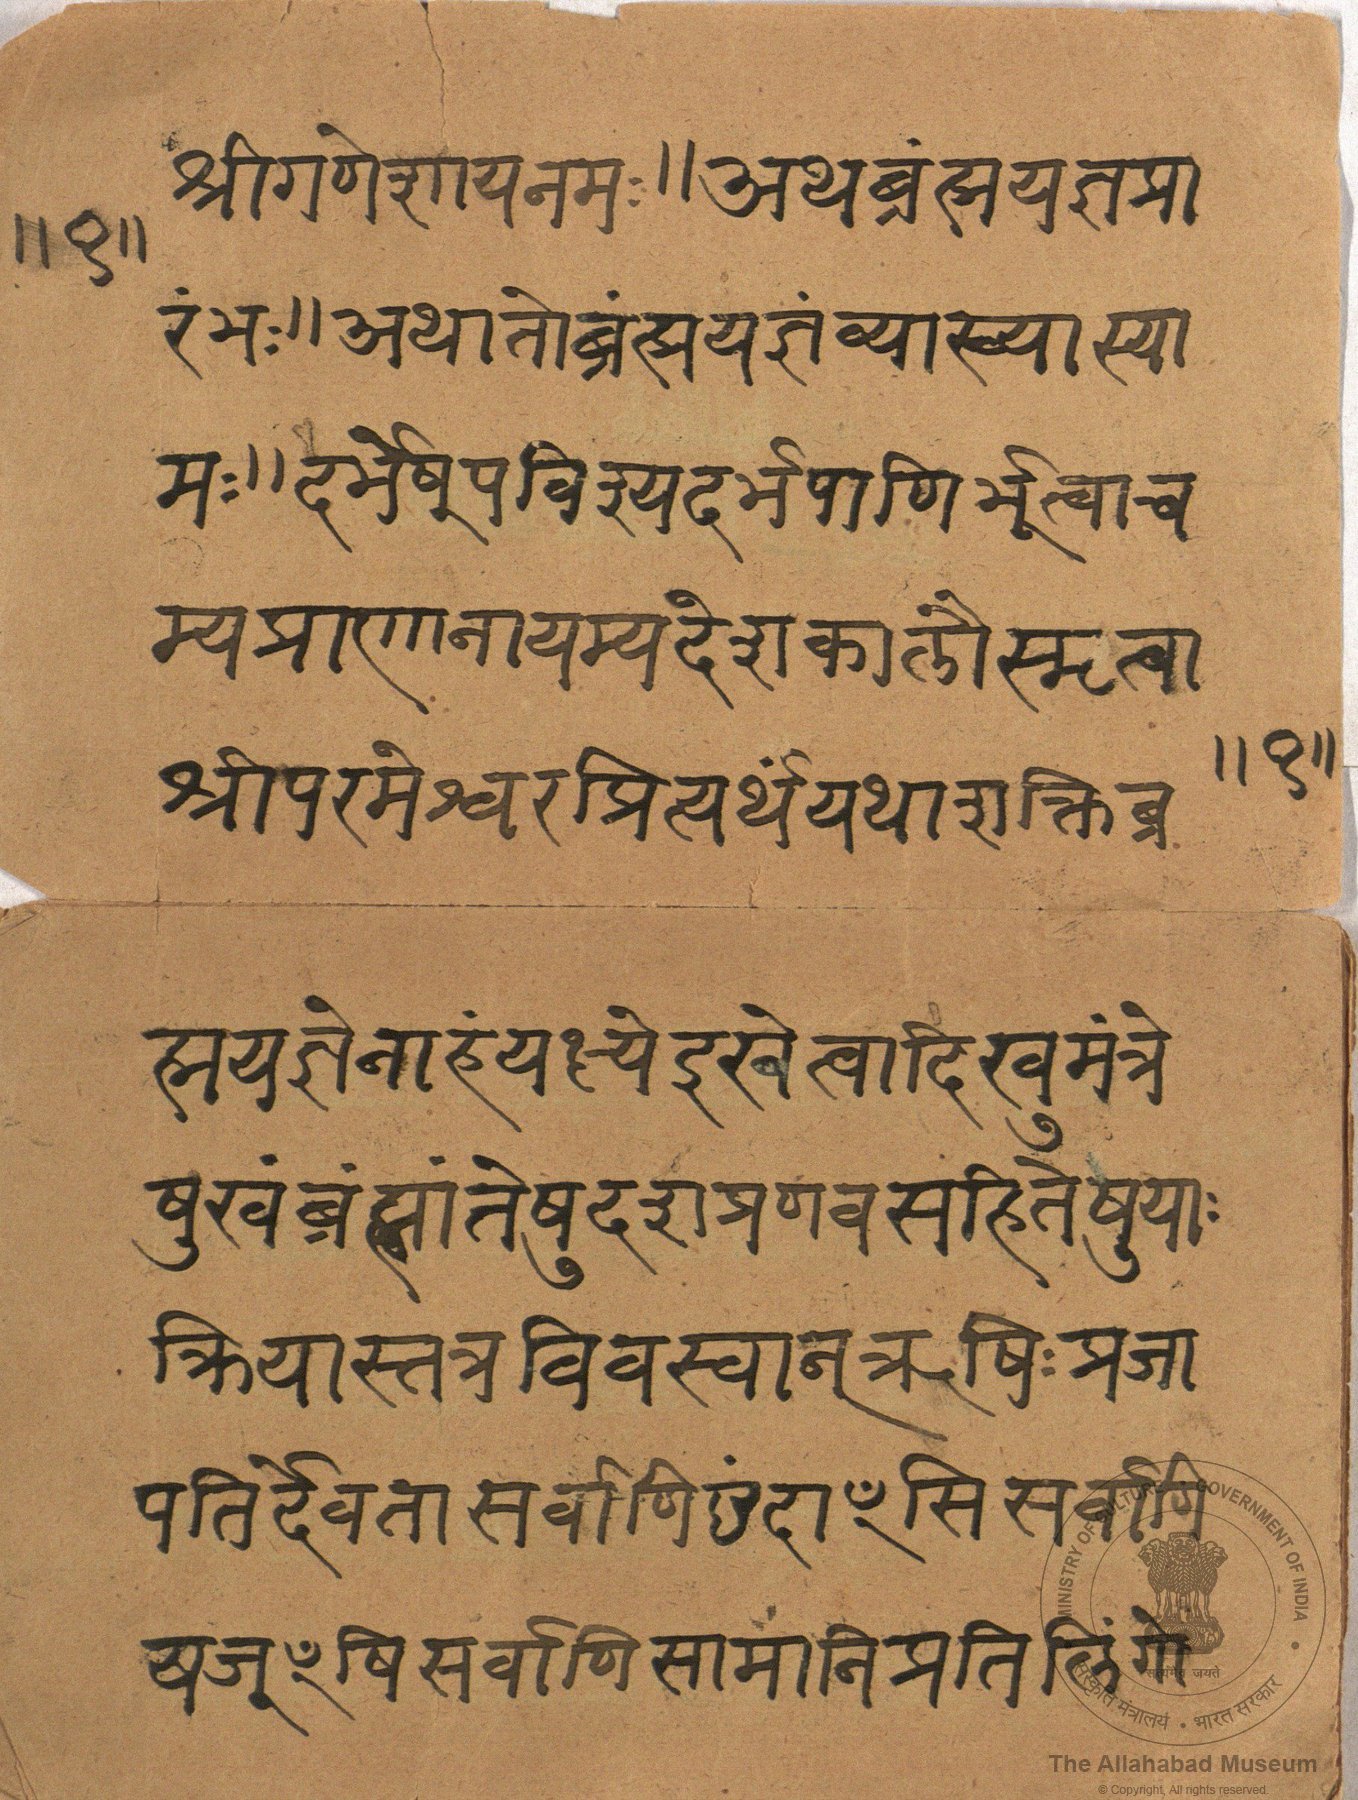 श्रीगणेशायनमः॥अथब्रंह्मयज्ञप्रा
॥१॥
रंभः॥अथातोब्रंह्मयज्ञंव्याख्यास्या
मः॥दर्भेषूपविश्यदर्भपाणिर्भूत्वाच
म्यप्राणानायम्यदेशकालौस्मृत्वा
श्रीपरमेश्वरप्रित्यर्थंयथाशक्तिब्र
॥१॥
ह्मयज्ञेनाहंयक्ष्येइखेत्वादिखुमंत्रे
षुखंब्रंह्मांतेषुदशप्रणवसहितेषुयाः
क्रियास्तत्रविवस्वान्ऋषिःप्रजा
पतिर्देवतासर्वाणिछंदाꣳसिसर्वाणि
यजूꣳषिसर्वाणिसामानिप्रतिलिंगो
MINISTRY OF CULTURE • GOVERNMENT OF INDIA
सत्यमेव जयते
संस्कृति मंत्रालय • भारत सरकार
The Allahabad Museum
© Copyright, All rights reserved.